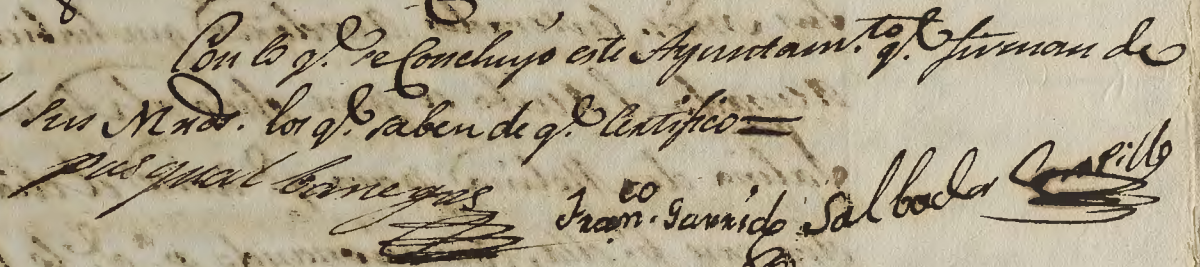 Con lo q.e se Concluyó este Ayuntam.to q.e firman de
sus Mrds. los q.e saben de q.e Certifico =
pasqual banegas
Fran.co Garrido Salbador